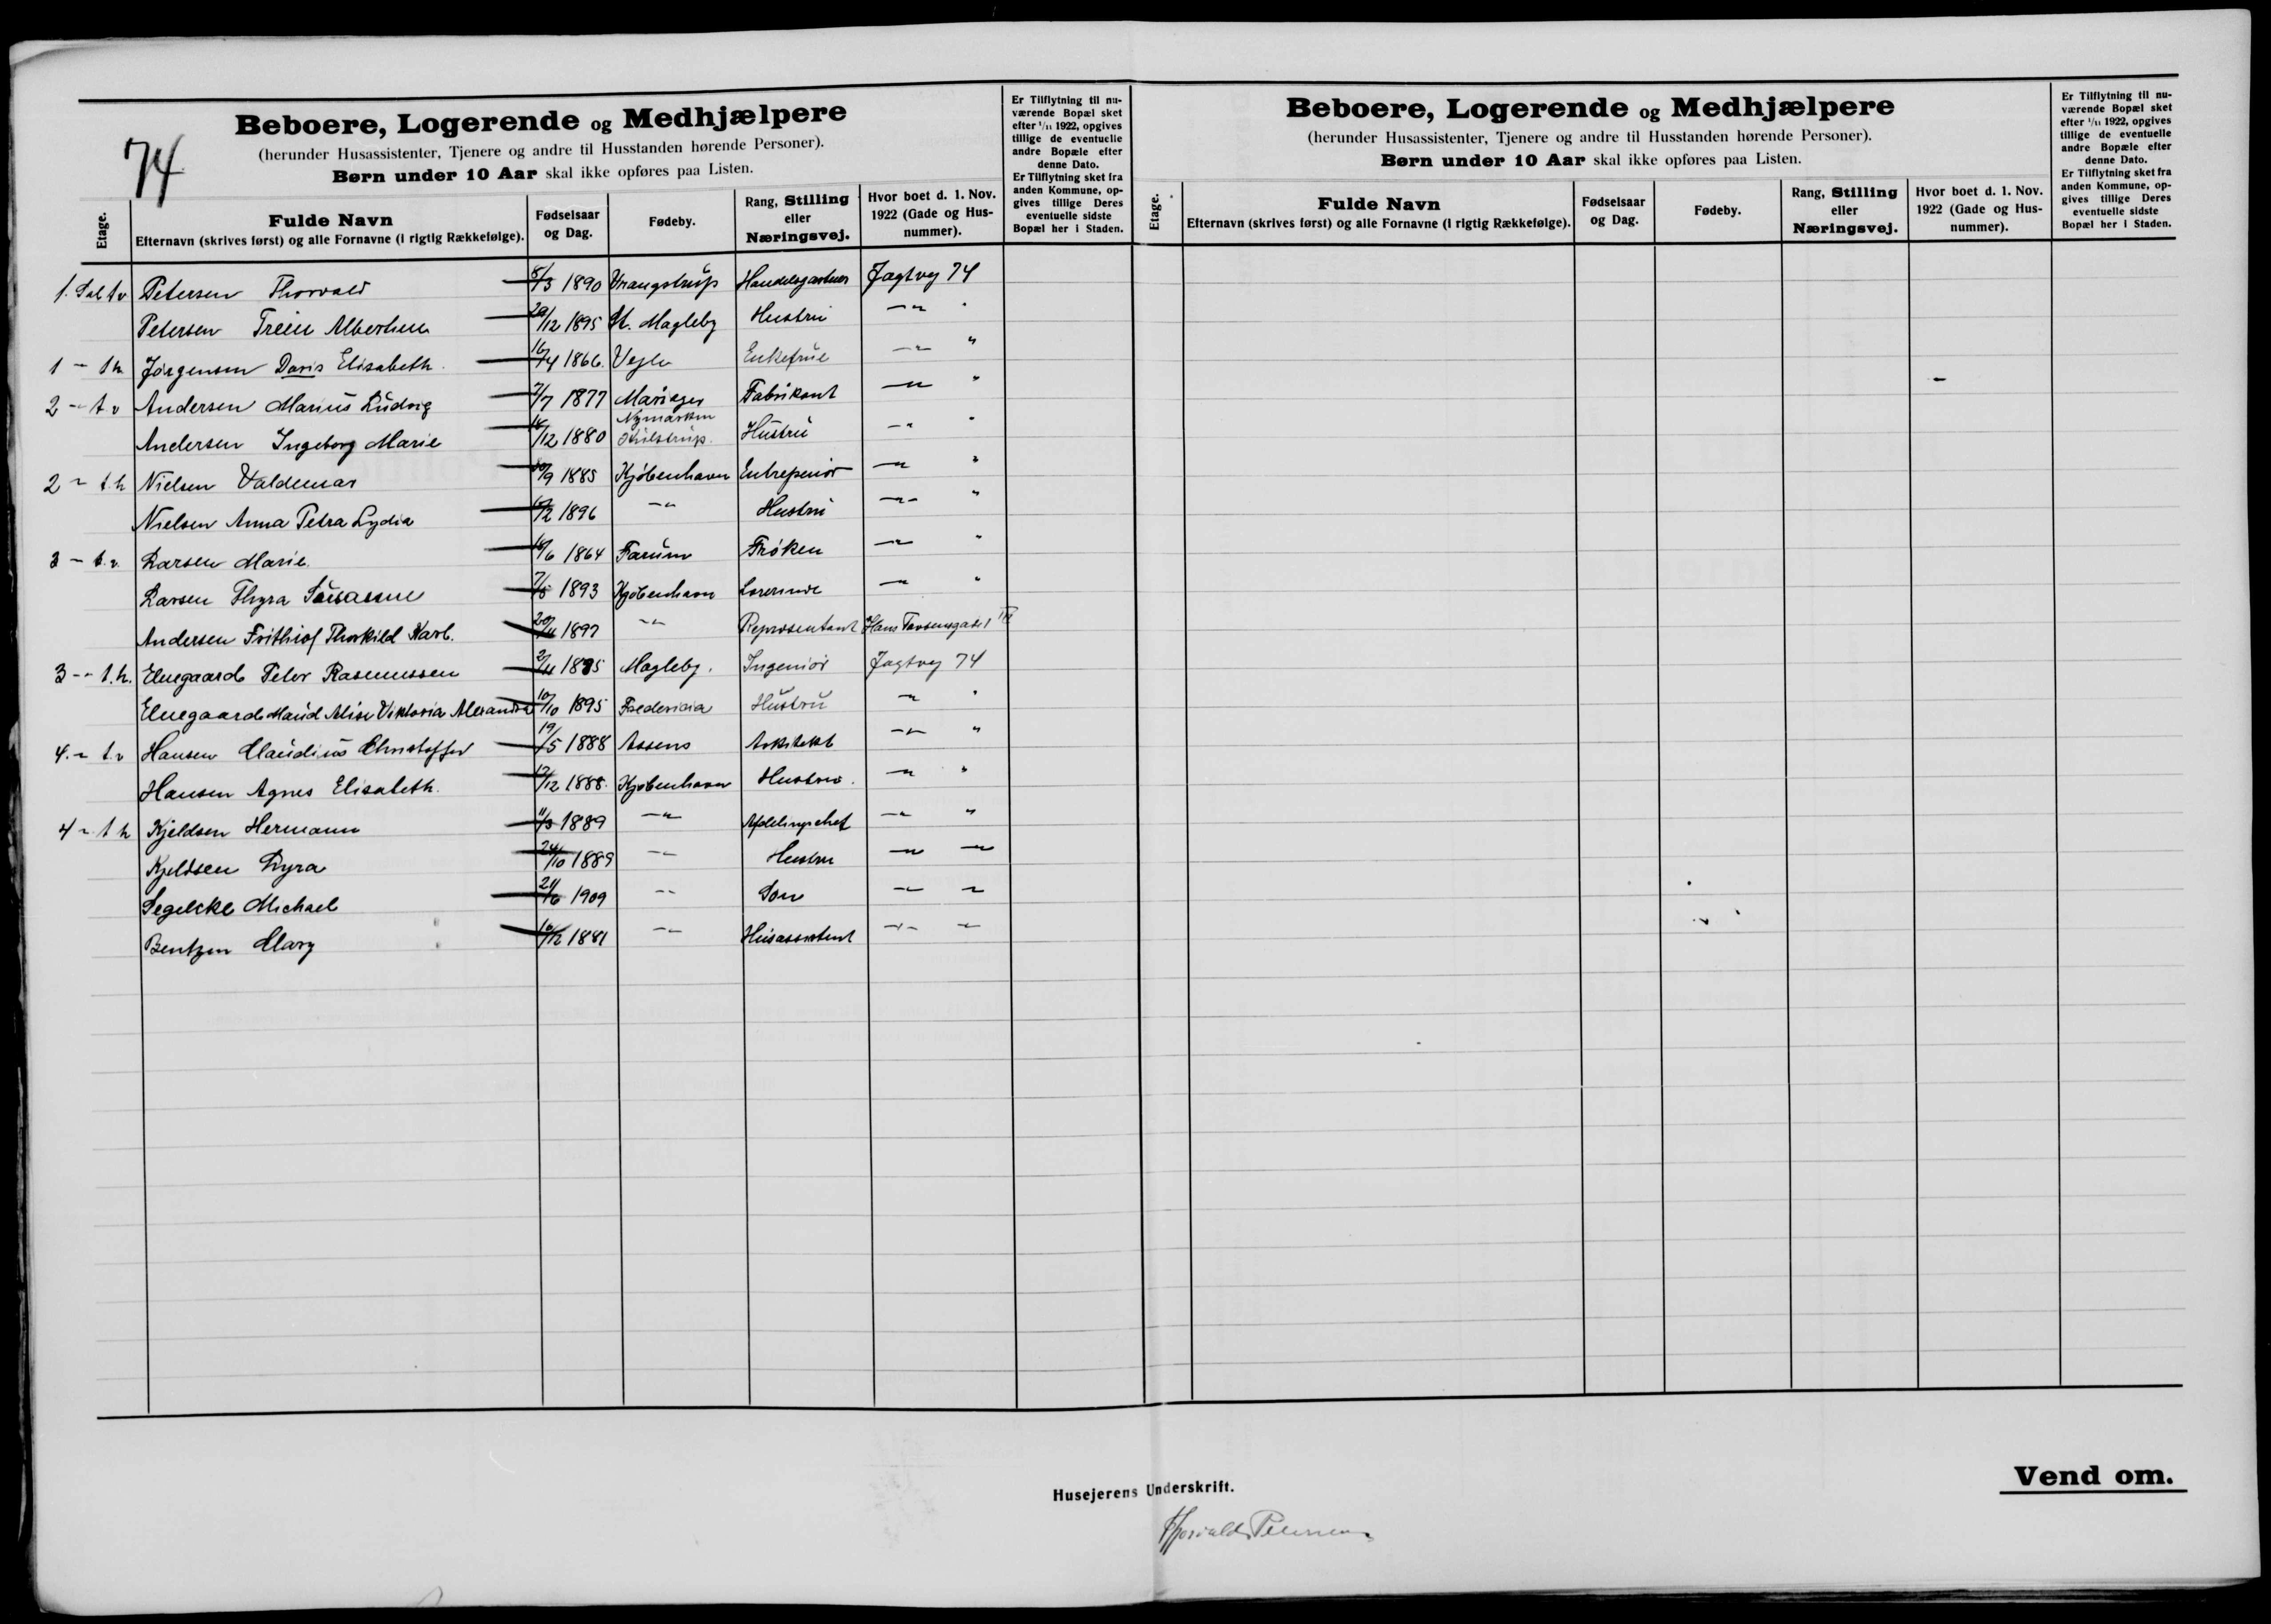 74
Beboere, Logerende og Medhjælpere
(herunder Husassistenter, Tjenere og andre til Husstanden hørende Personer).
Børn under 10 Aar skal ikke opføres paa Listen.
Etage.
Fulde Navn
Efternavn (skrives først) og alle Fornavne (i rigtig Rækkefølge).
Fødselsaar og Dag.
Fødeby.
Rang, Stilling eller Næringsvej.
Hvor boet d. 1. Nov. 1922 (Gade og Husnummer).
Er Tilflytning til nuværende Bopæl sket efter 1/11 1922, opgives tillige de eventuelle andre Bopæle efter denne Dato.
Er Tilflytning sket fra anden Kommune, opgives tillige Deres eventuelle sidste Bopæl her i Staden.
1. Sal tv Petersen Thorvald 8/3 1890 Vrangstrup Handelsgartner Jagtvej 74
Petersen 12 1895 St. Magleby Hustru — "
1 - th Jørgensen Doris Elisabeth 16/4 1866. Vejle Enkefrue — "
2 - tv Andersen Marius Ludvig 7/7 1877 Mariager Fabrikant — "
Andersen Ingeborg Marie 12 1880 Nymarken Hustru — "
2 - t.h Nielsen Valdemar 30/9 1885 Kjøbenhavn Entrepenør — "
Nielsen Anna Petra Lydia 2 1896 — Hustru — "
3 - t.v. Larsen Marie. 6 1864 Farum Frøken — "
Larsen Thyra Susanne 7/5 1893 Kjøbenhavn Lærerinde — "
Andersen Frithiof Thorkild Karl. 20/11 1897 — Repræsentant Hans Tavsensgade 1 III
3 - t.h. Elnegaard Peter Rasmussen 2/11 Magleby. Ingeniør Jagtvej 74
Elnegaard Maud Alise Viktoria Alexandra 10/10 1895 Fredericia Hustru — "
4. - t.v Hansen Claudius Christoffer 19/5 1888 Assens Arkitekt — "
Hansen Agnes Elisabeth. 12 1888. Kjøbenhavn Hustru. — "
4 - th Kjeldsen Hermann 11/3 1889 — Afdelingschef — "
Kjeldsen Dyra 24/10 1889 — Hustru — —
Segelcke Michael 21/6 1909 — Søn — —
Bentzen Mary 12 1881 — Husassistent — —
Beboere, Logerende og Medhjælpere
(herunder Husassistenter, Tjenere og andre til Husstanden hørende Personer).
Børn under 10 Aar skal ikke opføres paa Listen.
Etage.
Fulde Navn
Efternavn (skrives først) og alle Fornavne (i rigtig Rækkefølge).
Fødselsaar og Dag.
Fødeby.
Rang, Stilling eller Næringsvej.
Hvor boet d. 1. Nov. 1922 (Gade og Husnummer).
Er Tilflytning til nuværende Bopæl sket efter 1/11 1922, opgives tillige de eventuelle andre Bopæle efter denne Dato.
Er Tilflytning sket fra anden Kommune, opgives tillige Deres eventuelle sidste Bopæl her i Staden.
Vend om.
Husejerens Underskrift.
Thorvald Petersen